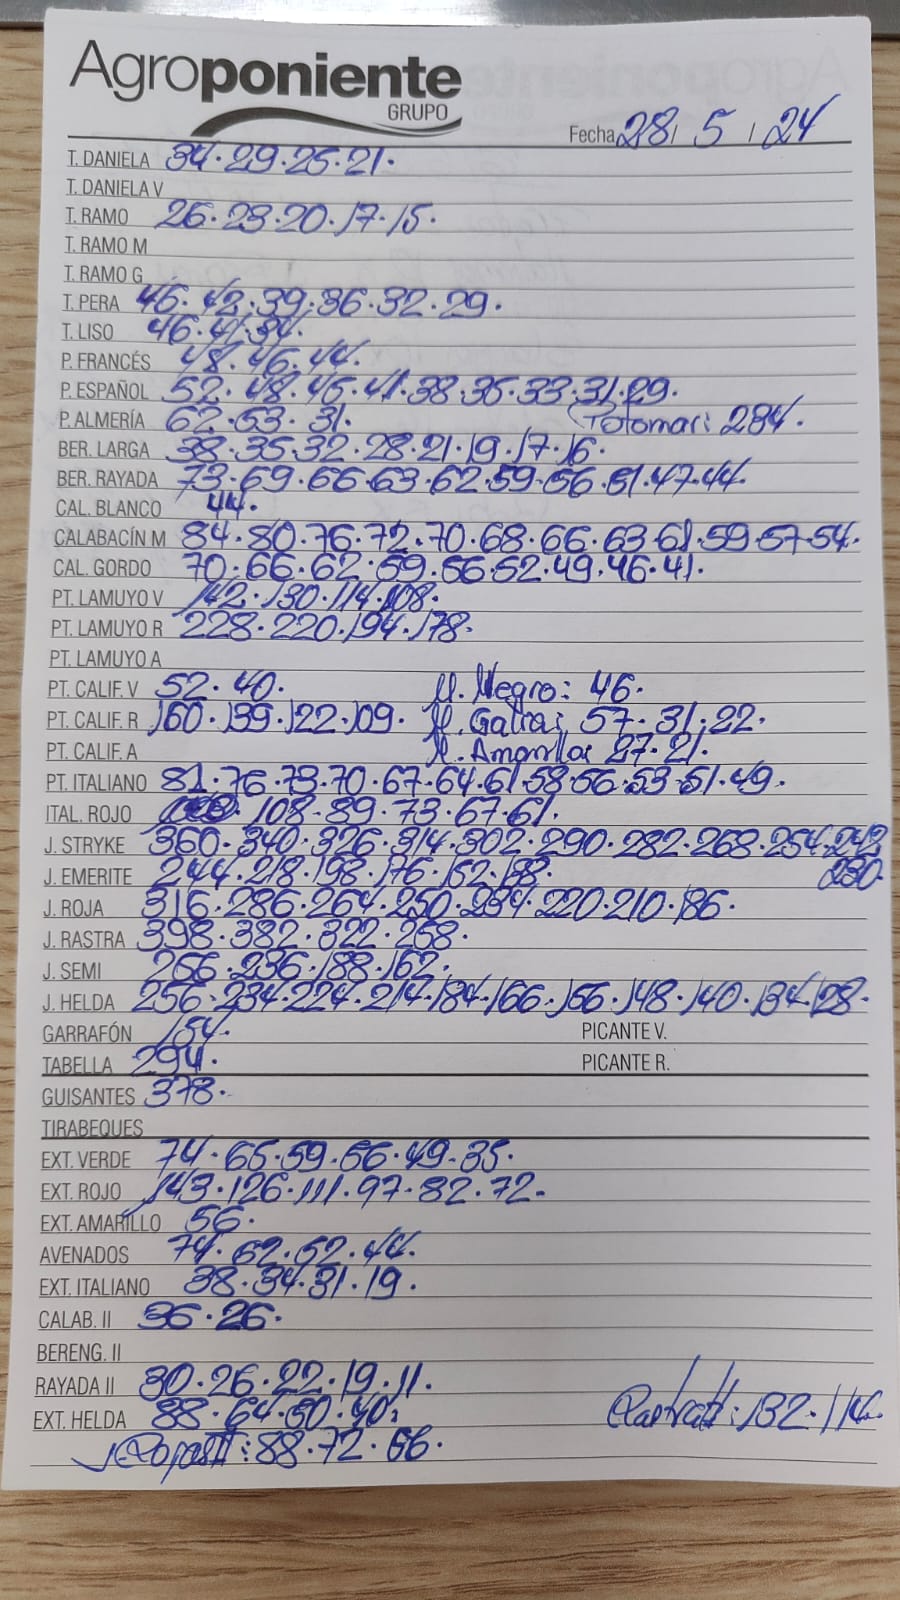 Agroponiente
GRUPO
Fecha 28 / 5 / 24
T. DANIELA 34.29.25.21.
T. DANIELA V
T. RAMO 26.23.20.17.15.
T. RAMO M
T. RAMO G
T. PERA 46.42.39.36.32.29.
T. LISO 46.41.34.
P. FRANCÉS 48.46.44.
P. ESPAÑOL 52.48.45.41.38.35.33.31.29.
P. ALMERÍA 62.53.31. (Totomar: 284.
BER. LARGA 38.35.32.28.21.19.17.16.
BER. RAYADA 73.69.66.63.62.59.56.51.47.44.
CAL. BLANCO 44.
CALABACÍN M 84.80.76.72.70.68.66.63.61.59.57.54.
CAL. GORDO 70.66.62.59.56.52.49.46.41.
PT. LAMUYO V 142.130.114.108.
PT. LAMUYO R 228.220.194.178.
PT. LAMUYO A
PT. CALIF. V 52.40. M. Negro: 46.
PT. CALIF. R 160.139.122.109. M. Galia: 57.31.22.
PT. CALIF. A M. Amarillo: 27.21.
PT. ITALIANO 81.76.73.70.67.64.61.58.56.53.51.49.
ITAL. ROJO 108.89.73.67.61.
J. STRYKE 360.340.326.314.302.290.282.268.254.243
J. EMERITE 244.218.198.176.162.138. 230.
J. ROJA 316.286.264.250.234.220.210.186.
J. RASTRA 398.382.322.258.
J. SEMI 256.236.188.162.
J. HELDA 256.234.224.214.184.166.156.148.140.134.128.
GARRAFÓN 154. PICANTE V.
TABELLA 294. PICANTE R.
GUISANTES 378.
TIRABEQUES
EXT. VERDE 74.65.59.56.49.35.
EXT. ROJO 143.126.111.97.82.72.
EXT. AMARILLO 56.
AVENADOS 74.62.52.44.
EXT. ITALIANO 38.34.31.19.
CALAB. II 36.26.
BERENG. II
RAYADA II 30.26.22.19.11.
EXT. HELDA 88.64.50.40. RastraII: 132.114.
J RojaII: 88.72.56.